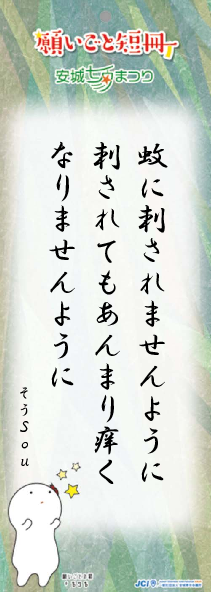 願いごと短冊
安城七夕まつり
蚊に刺されませんように
刺されてもあんまり痒く
なりませんように
そうSou
JCI